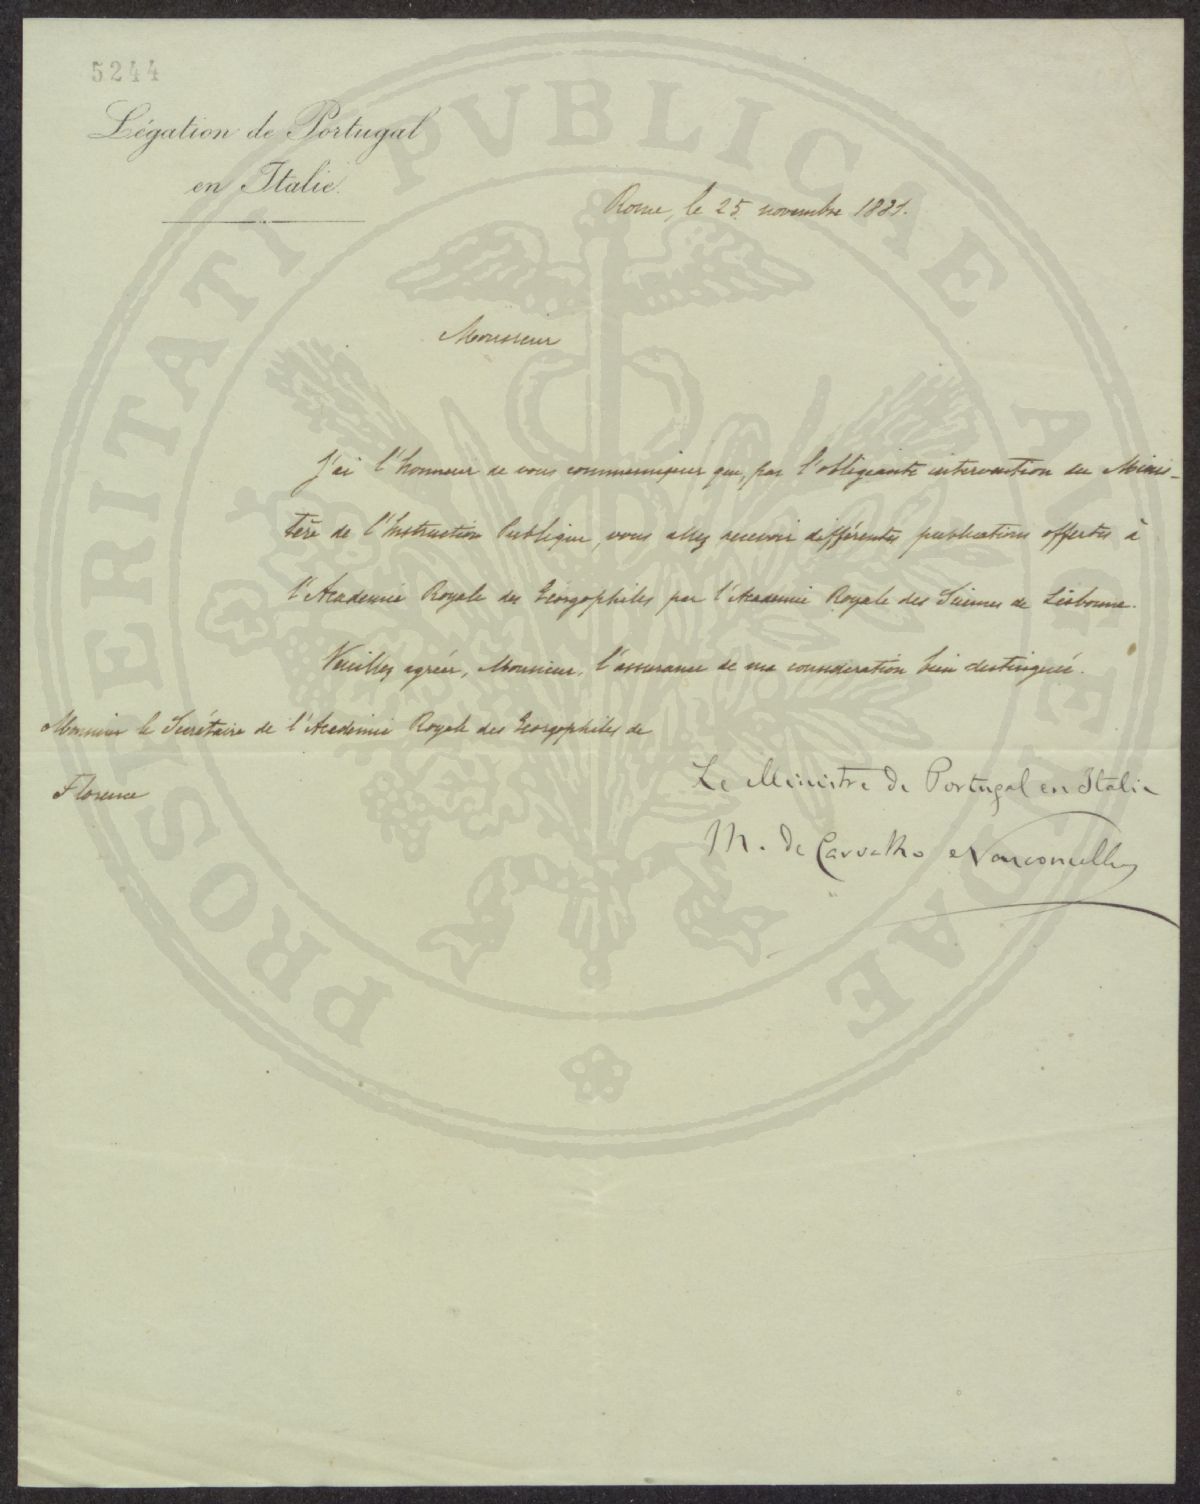 5244
Légation de Portugal
en Italie.
Rome, le 25 novembre 1881.
Monsieur
J'ai l'honneur de vous communiquer que, par l'obligeante intervention du Minis-
tère de l'Instruction Publique, vous allez recevoir différentes publications offertes à
l'Academie Royale des Géorgophiles par l'Academie Royale des Sciences de Lisbonne.
Veuillez agréer, Monsieur, l'assurance de ma consideration bien distinguée.
Monsieur le Secrétaire de l'Academie Royale des Georgophiles de
Florence
Le Ministre de Portugal en Italie
M. de Carvalho e Vasconcellos
PROSPERITATI PVBLICAE AVGENDAE